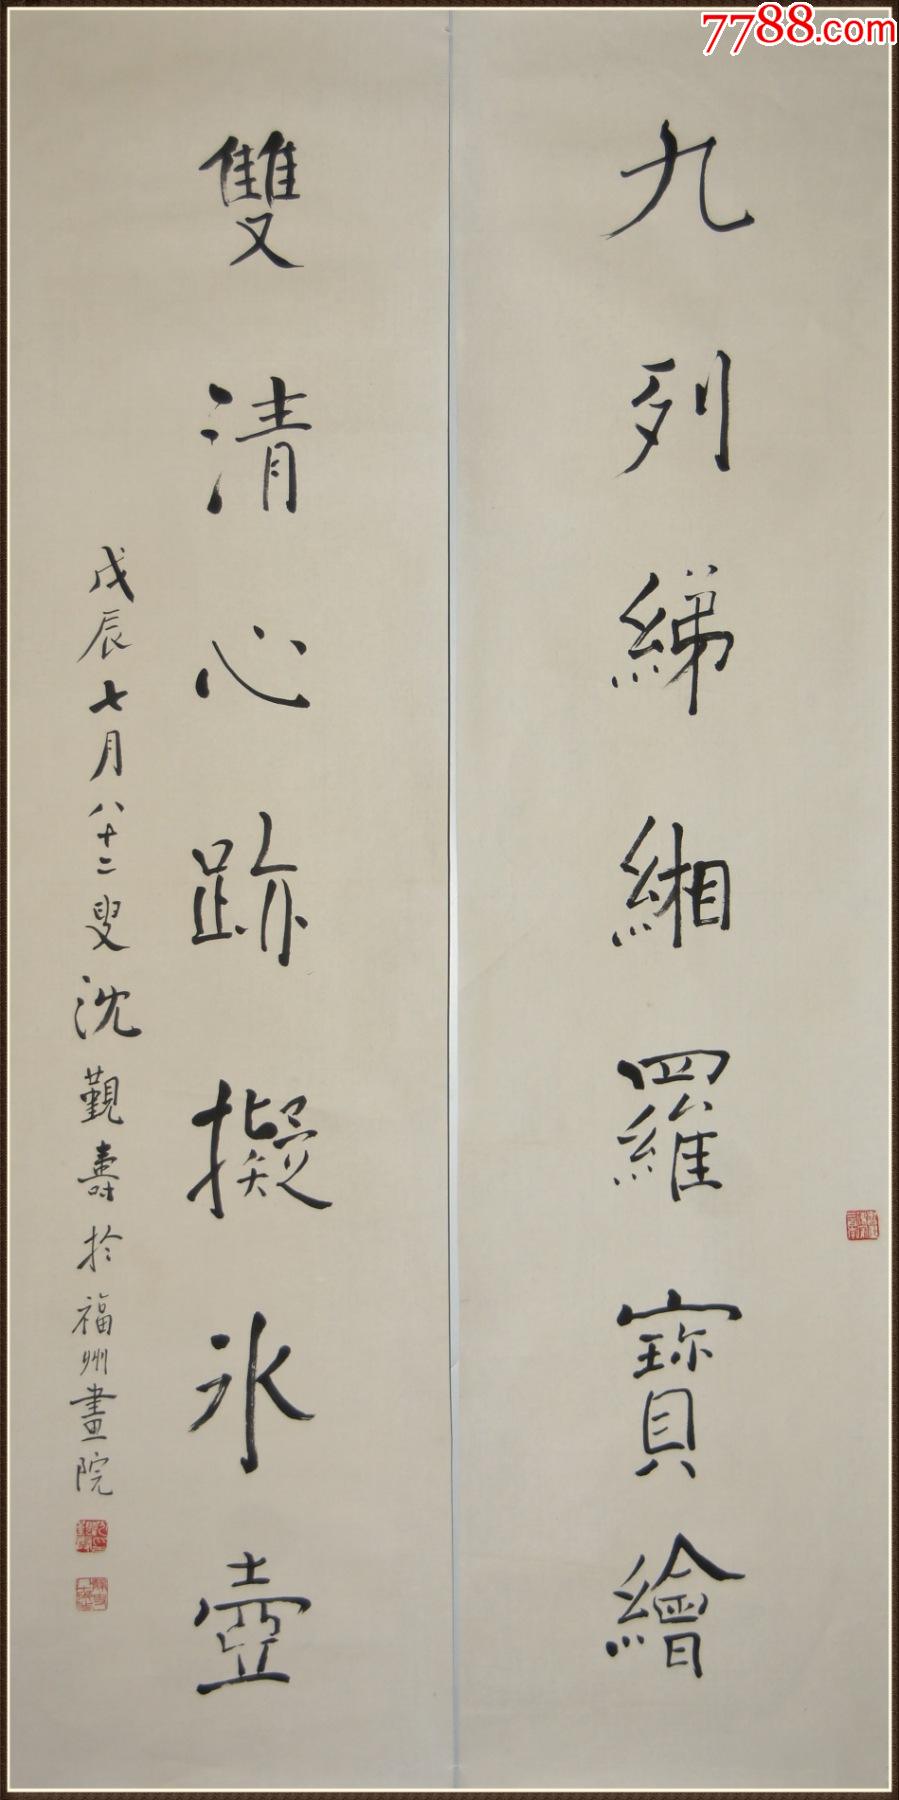 7788.com
九列綈緗羅寶繪
雙清心跡擬冰壺
戊辰七月八十二叟沈覲壽於福州畫院